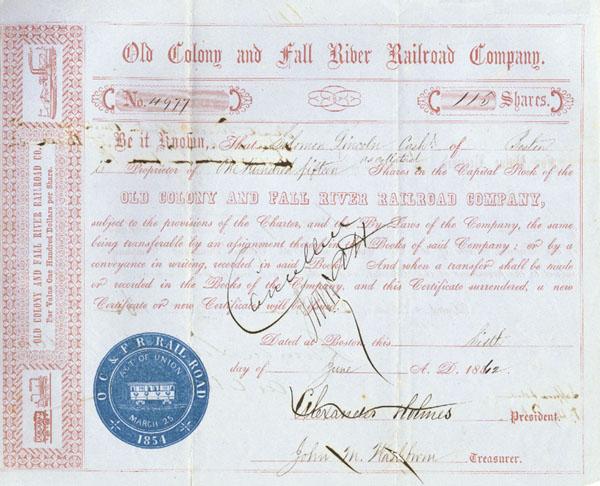 Old Colony and Fall River Railroad Company.
No. 4977
115 Shares.
Be it Known, That Solomon Lincoln Cash'r of Boston
is Proprietor of One hundred fifteen Shares in the Capital Stock of the
as collateral
OLD COLONY AND FALL RIVER RAILROAD COMPANY,
subject to the provisions of the Charter, and the By-Laws of the Company, the same
being transferable by an assignment thereof in the Books of said Company; or by a
conveyance in writing, recorded in said Books. And when a transfer shall be made
or recorded in the Books of the Company, and this Certificate surrendered, a new
Certificate or new Certificates will be issued.
Cancelled
Dated at Boston this
day of June A. D. 1862
Alexander Holmes President.
John M. Washburn Treasurer.
OLD COLONY AND FALL RIVER RAILROAD CO.
Par Value One Hundred Dollars per Share.
O C & F R RAIL-ROAD
ACT OF UNION
MARCH 25
1854